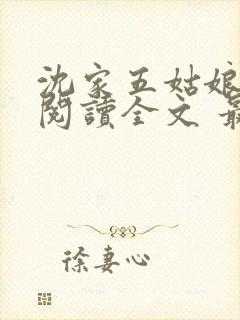 沈家五姑娘
閱讀全文 最
徐妻心